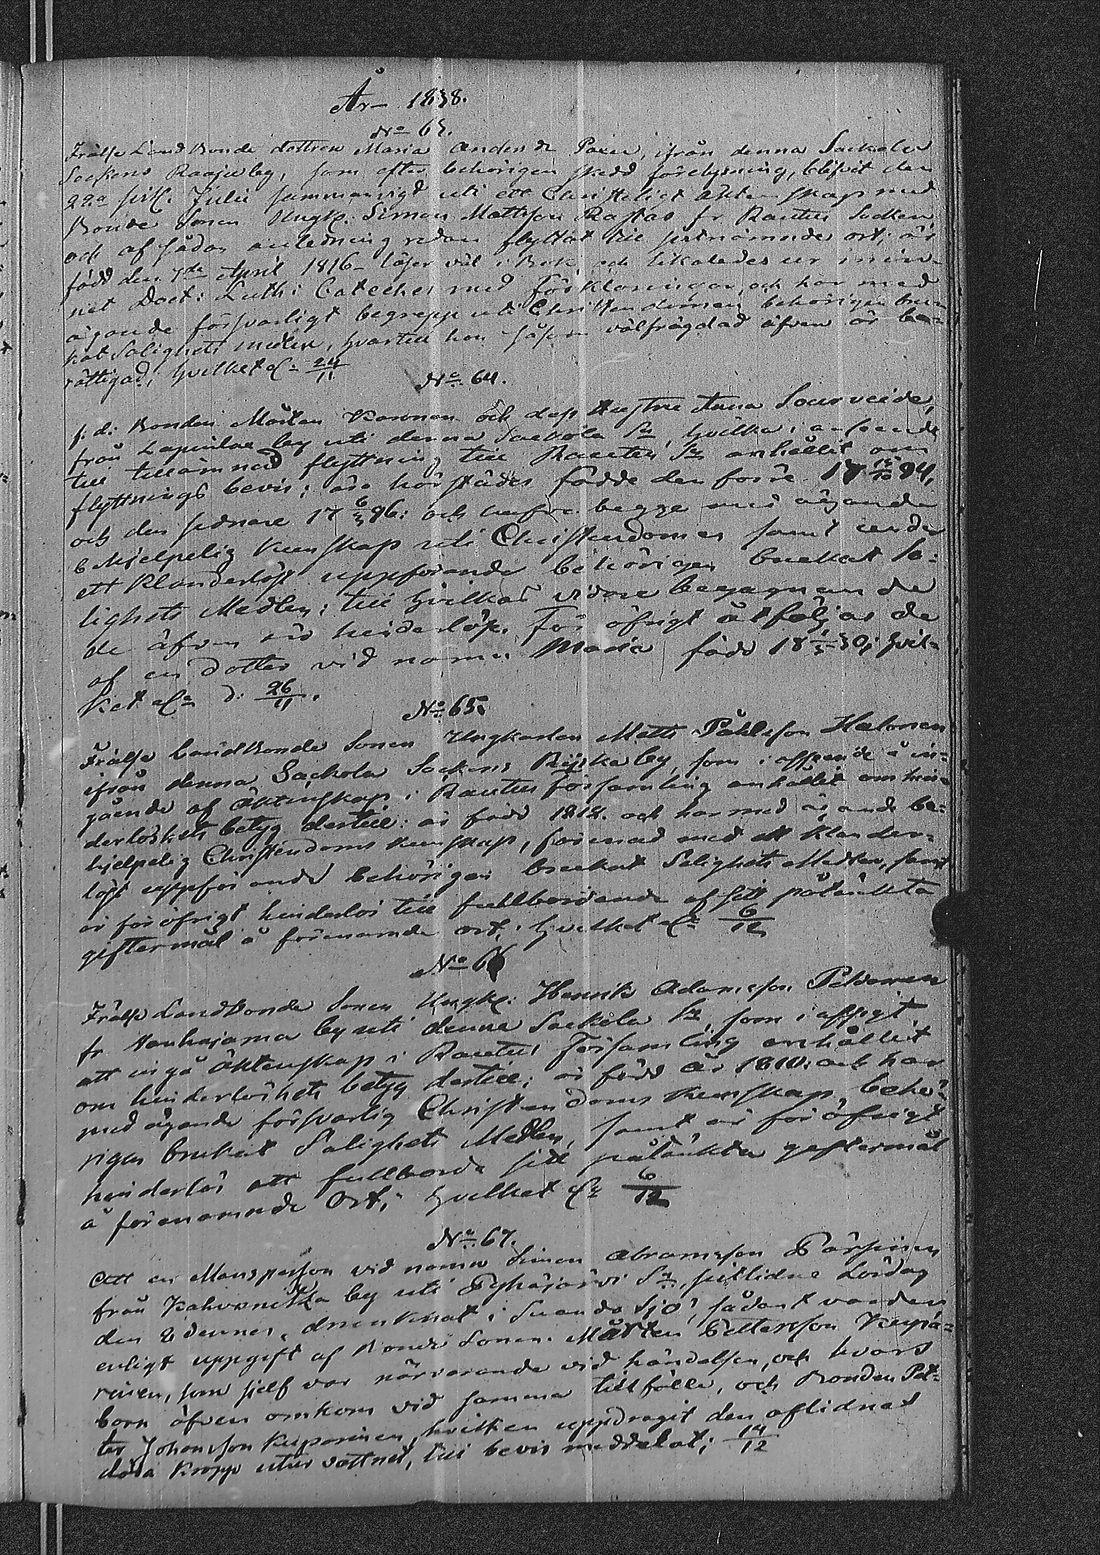 År 1838.
No 63.
Frälse Landbonde dottren Maria Anders dr Paxu, ifrån denna Sackola
Sockens Raaju by, som efter behörigen skedd förelysning, blifvit den
22e sistl. Julii sammanvigd uti ett Christeligt äktenskap med
Bonde Sonen Ungk: Simon Mattsson Rastas fr Rautus Socken
och af sådan anledning redan flyttat till sistnämnde ort, är
född den 7de April 1816 läser väl i Bok och likaledes ur min-
net Doct: Luth: Cateches med Förklaringar, och har med
ägande försvarligt begrepp uti Christendomen behörigen bru-
kat Salighets medlen, hvartill hon såsom välfrägdad äfven är be-
rättigad, hvilket &c 24/11
No 64.
f. d. Bonden Mårten Karonen och dess Hustru Anna Sourveide,
från Lapinlax by uti denna Sackola Sn, hvilka i anseende
till tillämnad flyttning till Rautus Sn anhållit om
flyttnings bevis: äro härstädes födde den förre 17 12/10 94,
och den sednare 17 6/3 96: och hafva begge med ägande
behjelpelig kunskap uti Christendomen samt under
ett klanderlöst uppförande behörigen brukat Sa-
lighets Medlen; till hvilkas vidare begagnande
de äfven äro hinderlöse. För öfrigt åtföljas de
af en dotter vid namn Maria född 18 1/5 30; hvil-
ket &c d: 26/11.
No 65.
Frälse Landbonde Sonen Ungkarlen Matts Påhlsson Halonen
ifrån denna Sackola Sockens Riiska by, som i afseende å in-
gående af Äktenskap i Rautus församling anhållit om hin-
derlöshets betyg dertill: är född 1812. och har med ägande be-
hjelpelig Christendoms kunskap, förenad med ett klander-
löst uppförande behörigen brukat Salighets Medlen, samt
är för öfrigt hinderlös till fullbordande af sitt påtänkta
giftermål å förenämnde ort; hvilket &c 6/12
No 66
Frälse Landbonde Sonen Ungk: Henrik Adamsson Pekonen
fr Haukajama by uti denna Sackola Sn, som i afsigt
att ingå Äktenskap i Rautus Församling anhållit
om hinderlöshets betyg dertill; är född År 1810: och har
med ägande försvarlig Christendoms kunskap behö-
rigen brukat Salighets Medlen, samt är för öfrigt
hinderlös att fullborda sitt påtänkta giftermål
å förenämnde Ort; hvilket &c 6/12
No 67.
Att en Mansperson vid namn Simon Abramsson Pärssinen
från Kahvenitka by uti Pyhäjärvi Sn, sistlidne Lördag
den 8 dennes, drunknat i Suvando Sjö, sådant varder
enligt uppgift af Bonde Sonen Mårten Pettersson Kupa-
rinen, som sjelf var närvarande vid händelsen, och hvars
born äfven omkom vid samma tillfälle, och Bonden Pet-
ter Johansson Kuparinen, hvilken uppdragit den aflidnes
döda kropp utur vattnet, till bevis meddelat; 14/12